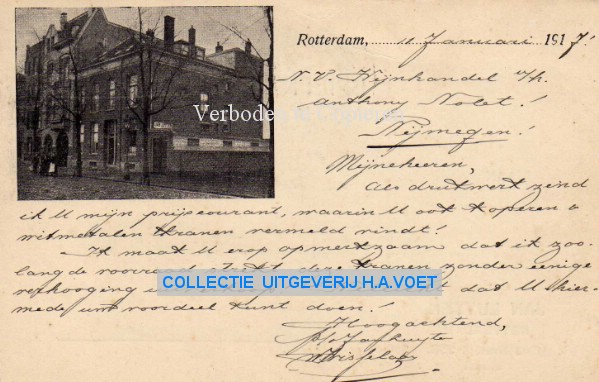 Rotterdam, 11 Januari 1917.
N.V. Wijnhandel v/h.
Anthony Nolet!
Nijmegen!
Mijneheeren,
Als drukwerk zend
ik U mijn prijscourant, waarin U ook koperen &
witmetalen kranen vermeld vindt!
Ik maak U erop opmerkzaam dat ik zoo-
lang de voorraad strekt deze kranen zonder eenige
verhooging dat U hier-
mede uw voordeel kunt doen!
Hoogachtend,
Verboden
COLLECTIE UITGEVERIJ H.A.VOET